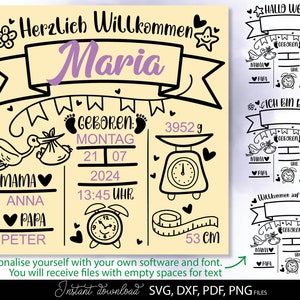 HerzLich WiLLKommen
Maria
GEBOREN:
MONTAG
21 07
2024
13:45 UHR
3952 g
MAMA
ANNA
PAPA
PETER
53 CM
HALLO WE
GEBOREN
MAMA
PAPA
ICH BIN
GEBOREN
MAMA
PAPA
Willkommen auf
GEBOREN
MAMA
PAPA
onalise yourself with your own software and font.
You will receive files with empty spaces for text
Instant download SVG, DXF, PDF, PNG FILES